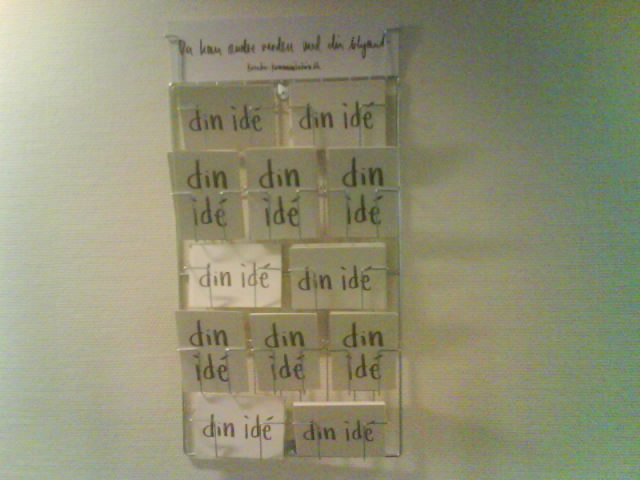 Du kan ændre verden med din blyant
din idé din idé
din din din
idé idé idé
din idé din idé
din din din
idé idé idé
din idé din idé